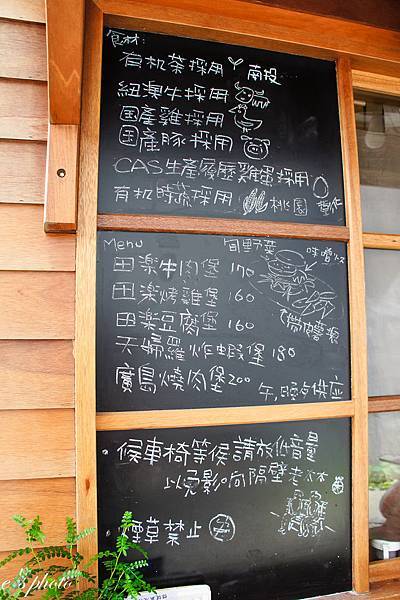 食材:
有机茶採用 南投
紐澳牛採用
国産雞採用
国産豚採用
CAS生產履歷雞蛋採用
有机時蔬採用 桃園
Menu 旬野菜 味噌
田楽牛肉堡 170
田楽烤雞堡 160
田楽豆腐堡 160
天婦羅炸蝦堡 180
廣島燒肉堡 200
候車椅等候請放低音量
以免影响隔壁老
煙草禁止
e's photo